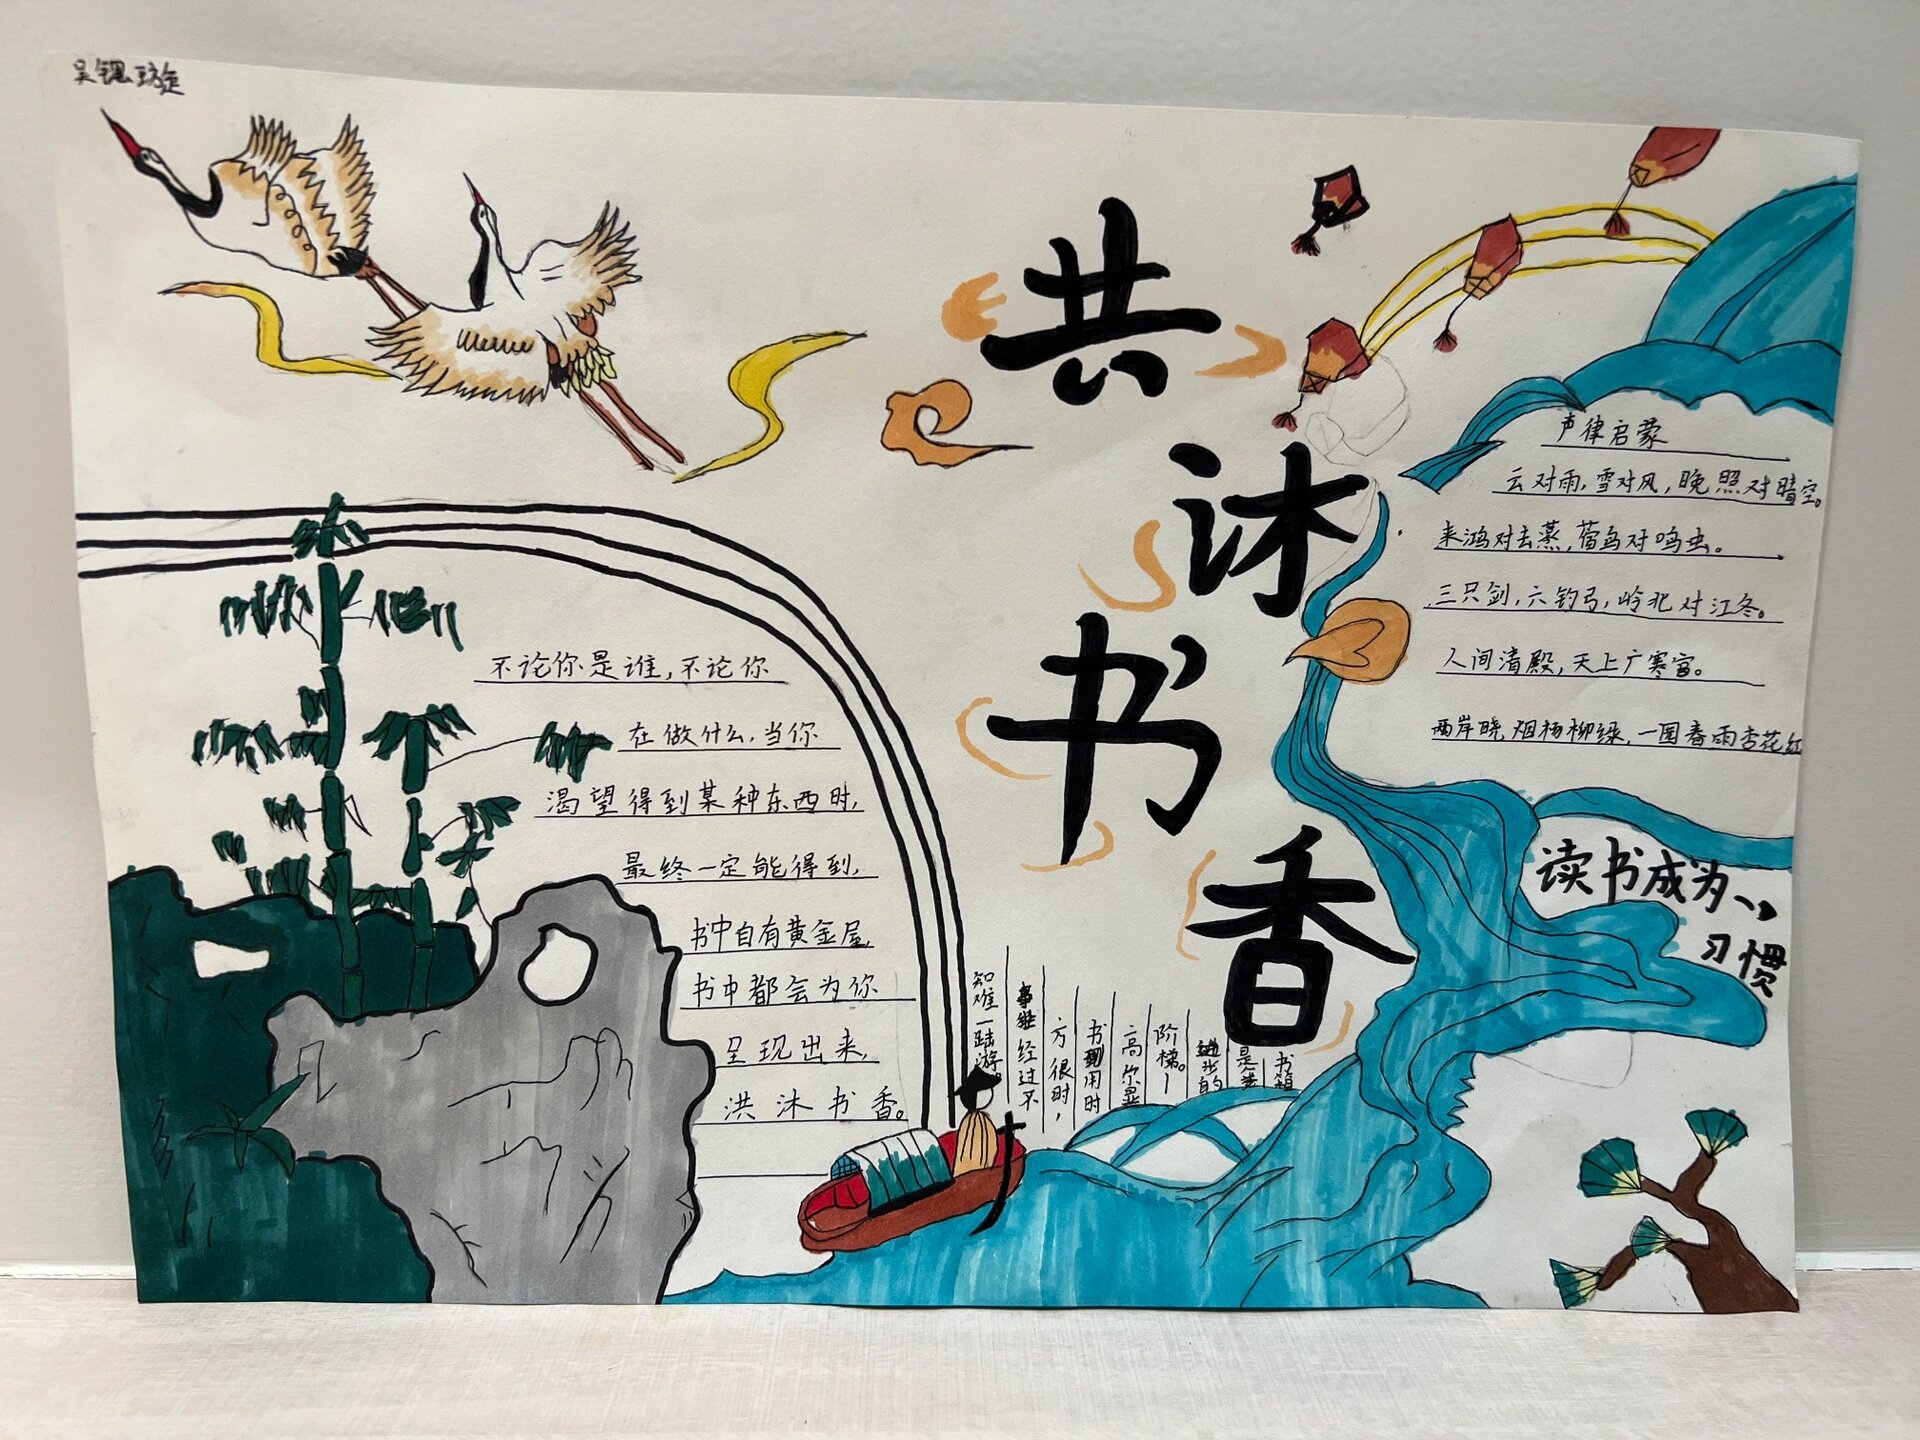 共沐书香
不论你是谁,不论你
在做什么,当你
渴望得到某种东西时,
最终一定能得到,
书中自有黄金屋,
书中都会为你
呈现出来,
洪沐书香。
声律启蒙
云对雨,雪对风,晚照对晴空。
来鸿对去燕,宿鸟对鸣虫。
三尺剑,六钧弓,岭北对江冬。
人间清殿,天上广寒宫。
两岸晓烟杨柳绿,一园春雨杏花红
读书成为一种
习惯
书籍
是
进步的
阶梯。一
高尔基
书到用时
方恨时,
事非经过不
知难一陆游。